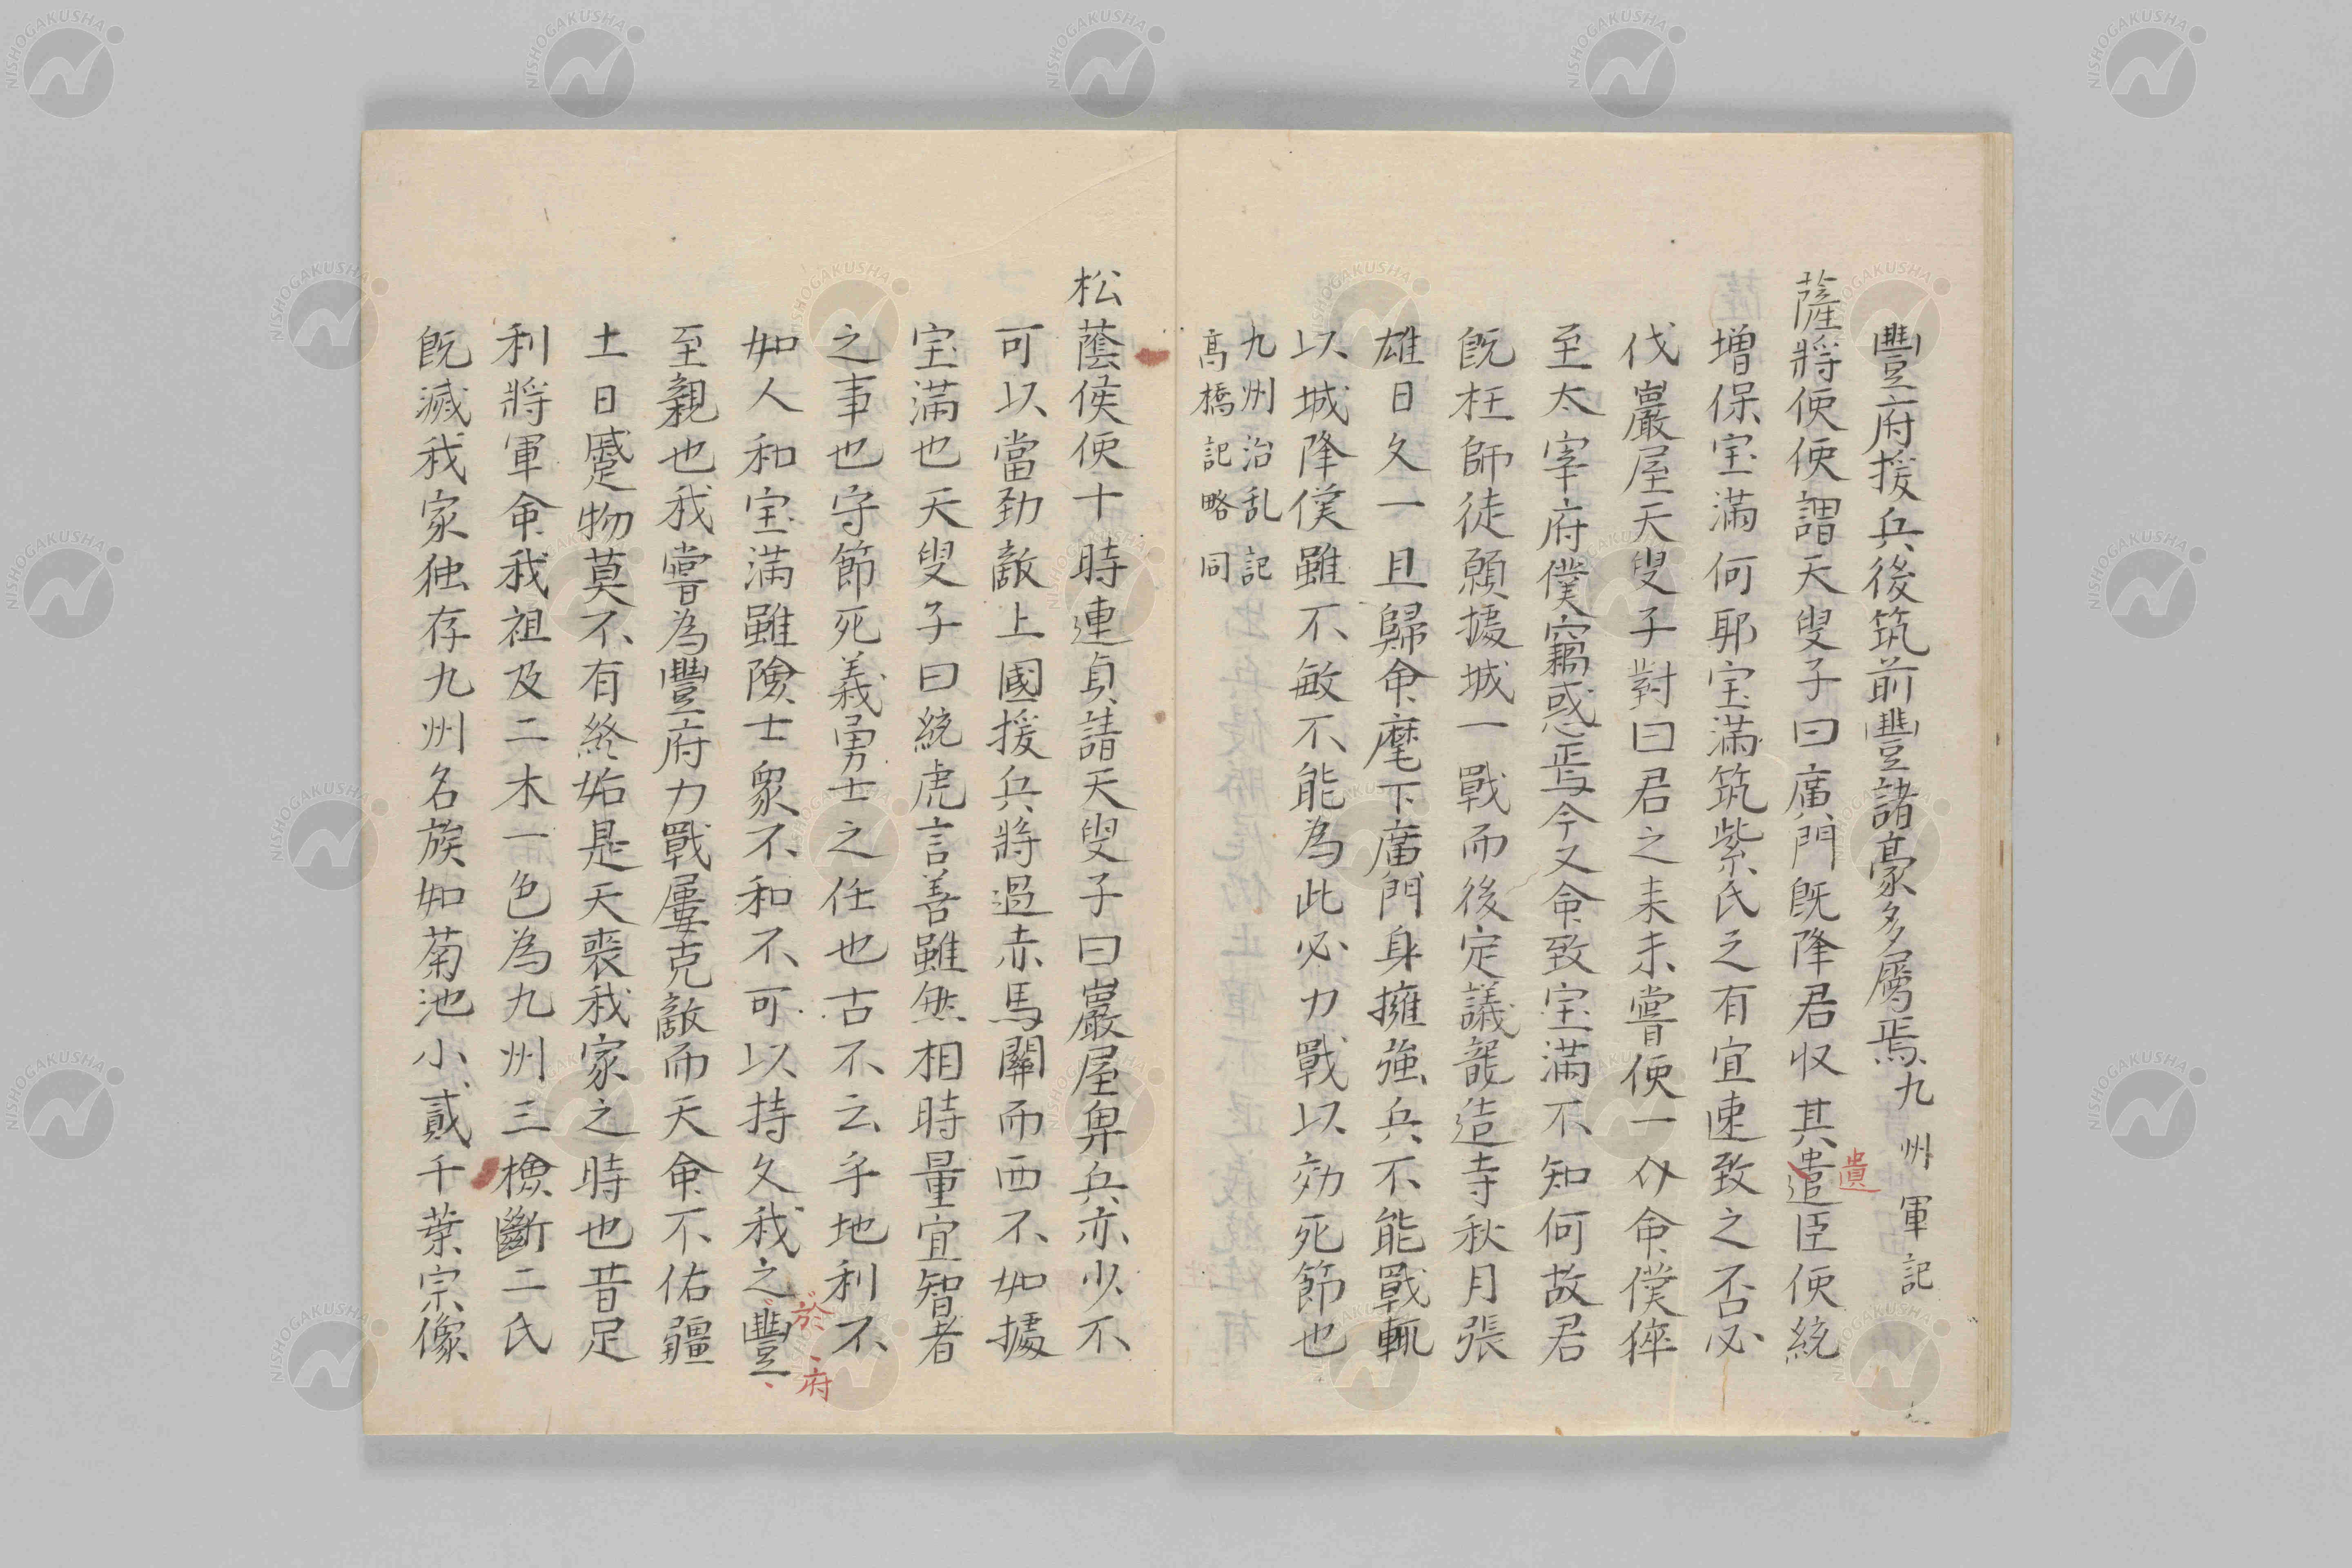 豐府援兵後筑前豐諸豪多属焉九州軍記
薩將使使謂天叟子曰廣門既降君収其遣臣使統
遺
增保宝滿何耶宝滿筑紫氏之有宜速致之否必
伐巖屋天叟子對曰君之来未嘗使一介命僕倅
至太宰府僕竊惑焉今又命致宝滿不知何故君
既枉師徒願據城一戰而後定議龍造寺秋月張
雄日久一旦歸命麾下廣門身擁強兵不能戰輒
以城降僕雖不敏不能為此必力戰以効死節也
九州治乱記
高橋記略同
松蔭侯使十時連貞請天叟子曰巖屋卑兵亦少不
可以當勁敵上國援兵將過赤馬關而西不如據
宝滿也天叟子曰統虎言善雖然相時量宜智者
之事也守節死義勇士之任也古不云乎地利不
如人和宝滿雖險士衆不和不可以持久我之豐
於府
至親也我嘗為豐府力戰屢克敵而天命不佑疆
土日蹙物莫不有終始是天喪我家之時也昔足
利將軍命我祖及二木一色為九州三檢斷二氏
既滅我家独存九州名族如菊池小貳千葉宗像
NISHOGAKUSHA